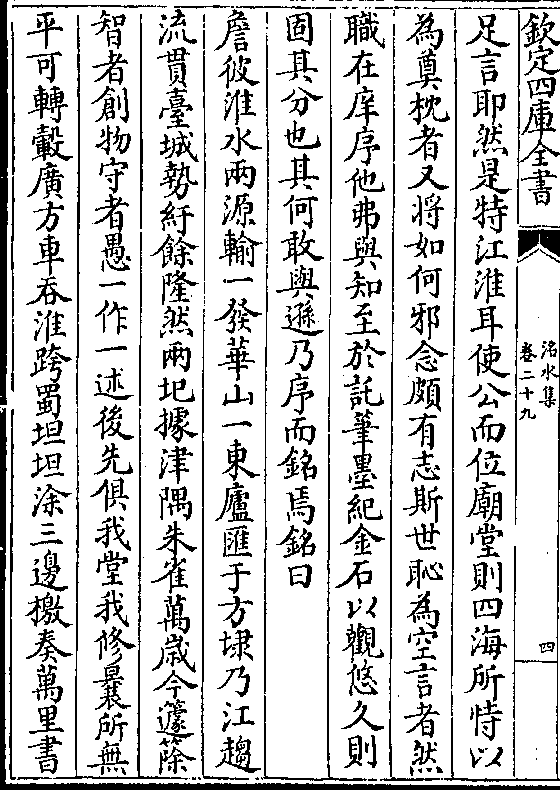 欽定四庫全書
洺水集
卷二十九
四
足言耶然是特江淮耳使公而位廟堂則四海所恃以
為奠枕者又将如何邪念頗有志斯世恥為空言者然
職在庠序他弗與知至於託筆墨紀金石以觀悠久則
固其分也其何敢與遜乃序而銘焉銘曰
詹彼淮水兩源輸一發華山一東廬匯于方埭乃江趨
流貫臺城勢紆餘隆然兩圯據津隅朱雀萬嵗今籧篨
智者創物守者愚一作一述後先俱我堂我修曩所無
平可轉轂廣方車吞淮跨蜀坦坦涂三邊檄奏萬里書